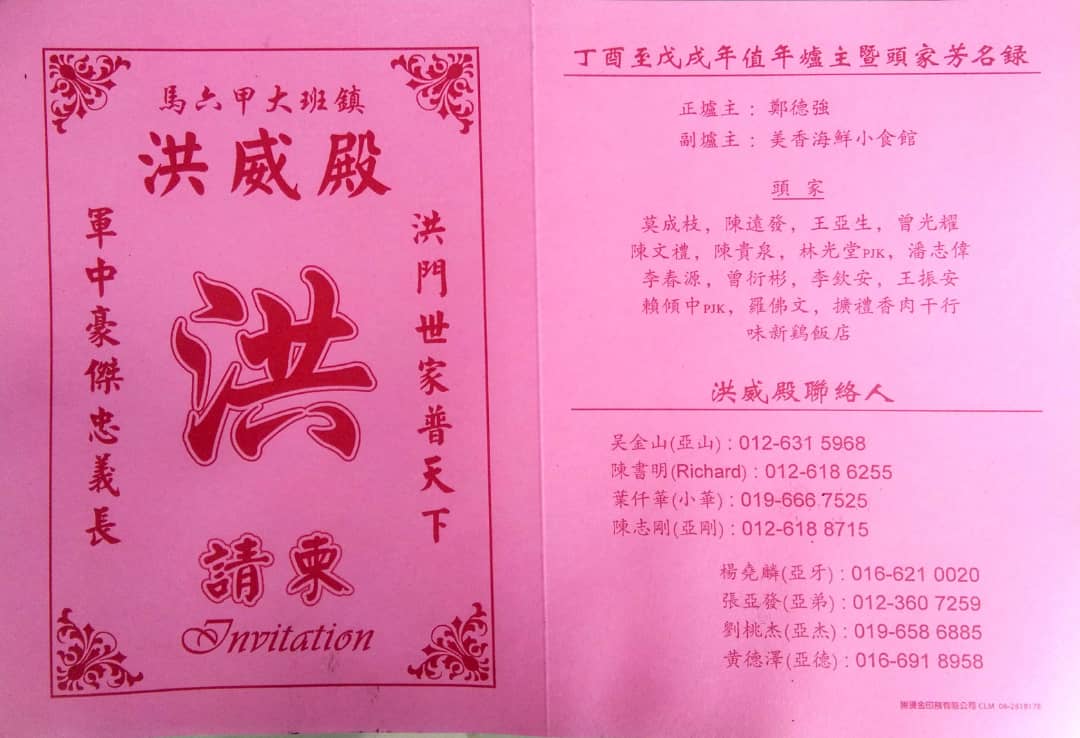 馬六甲大班鎮
洪威殿
洪門世家普天下
洪
軍中豪傑忠義長
請柬
Invitation
丁酉至戊戌年值年爐主暨頭家芳名録
正爐主：鄭德強
副爐主：美香海鮮小食館
頭家
莫成枝，陳遠發，王亞生，曾光耀
陳文禮，陳貴泉，林光堂PJK，潘志偉
李春源，曾衍彬，李欽安，王振安
賴傾中PJK，羅佛文，擴禮香肉干行
味新鷄飯店
洪威殿聯絡人
吴金山(亞山) : 012-631 5968
陳書明(Richard) : 012-618 6255
葉仟華(小華) : 019-666 7525
陳志剛(亞剛) : 012-618 8715
楊堯麟(亞牙) : 016-621 0020
張亞發(亞弟) : 012-360 7259
劉桃杰(亞杰) : 019-658 6885
黄德澤(亞德) : 016-691 8958
金印務有限公司 CLM 06-2818178